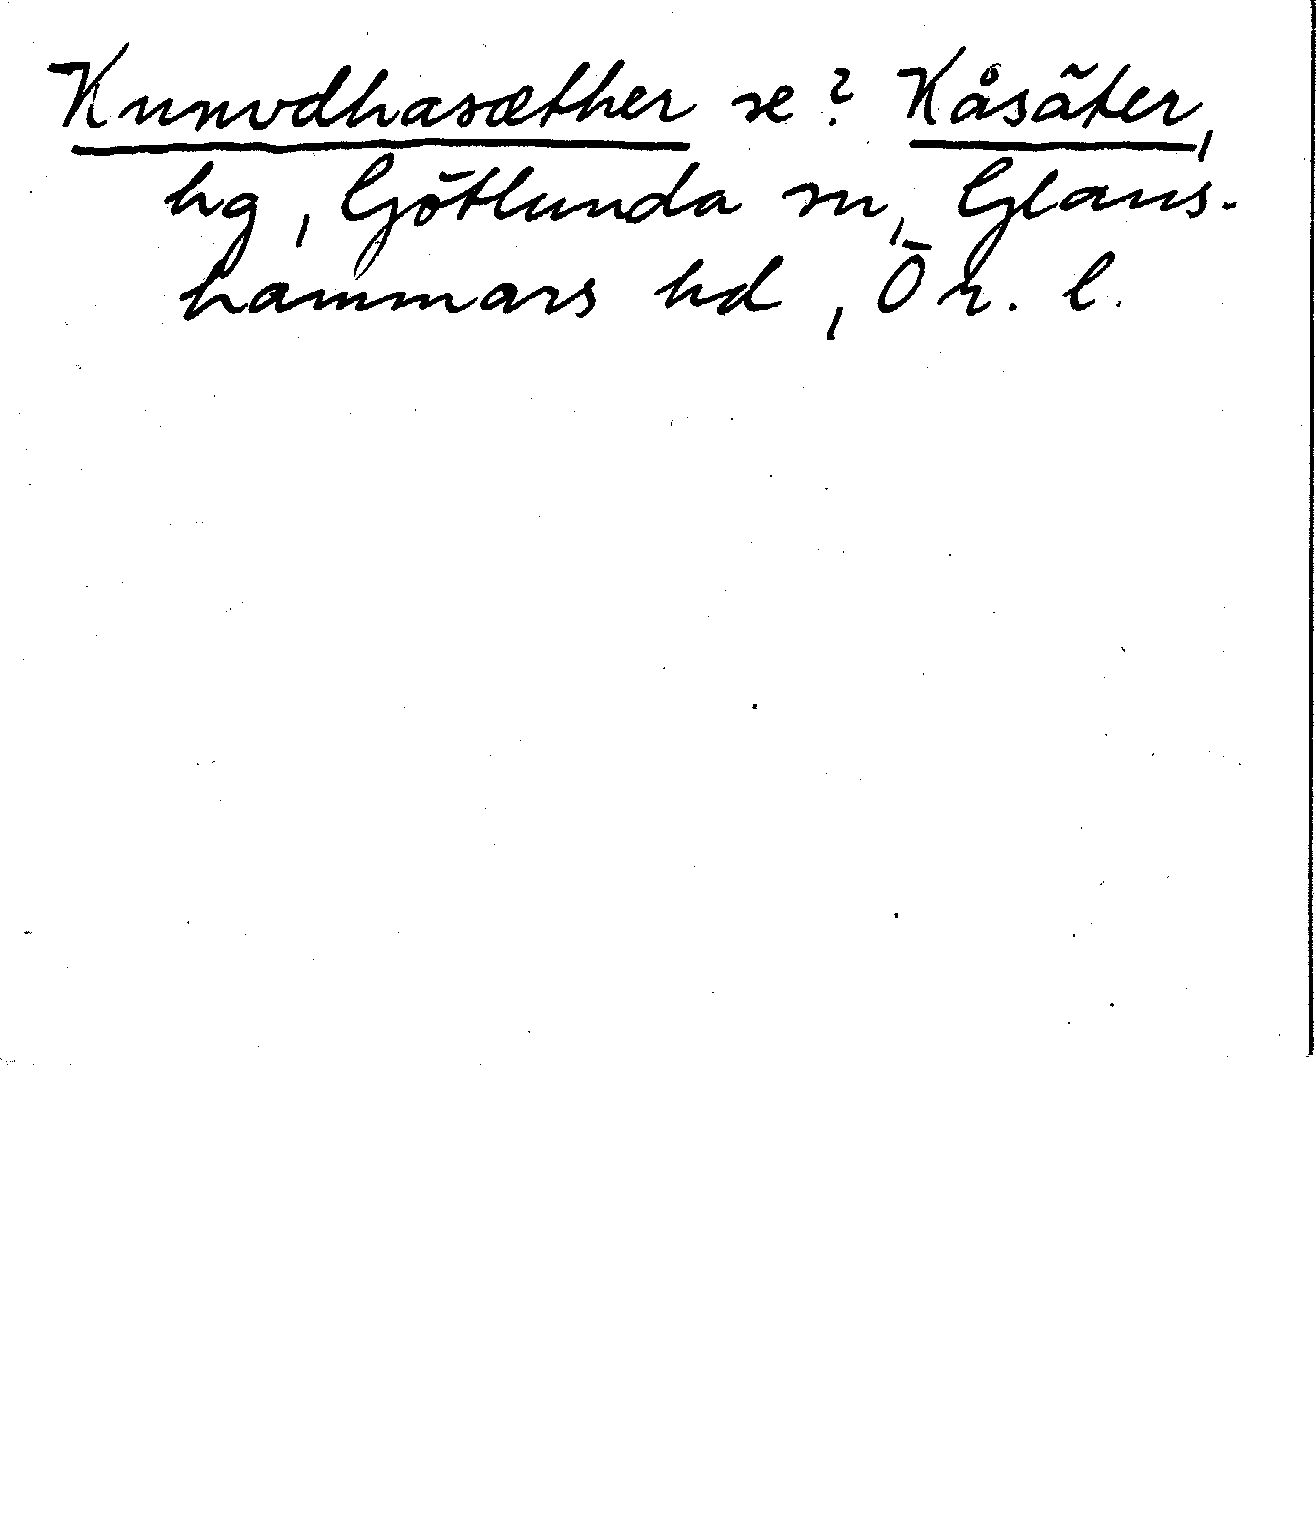 Kunvdhasæther se? Kåsäter,
hg, Götlunda sn, Glans-
hammars hd, Ör. l.